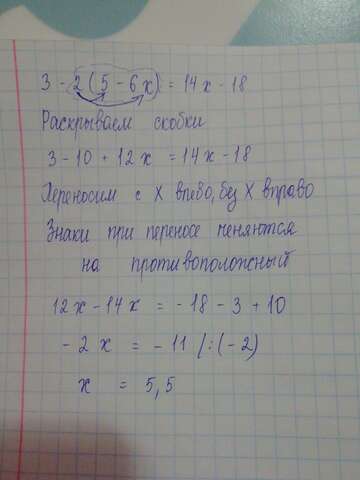 3 - 2(5 - 6x) = 14x - 18
Раскрываем скобки
3 - 10 + 12x = 14x - 18
Переносим с X влево, без X вправо
Знаки при переносе меняются
на противоположный
12x - 14x = - 18 - 3 + 10
- 2x = - 11 /:(-2)
x = 5,5